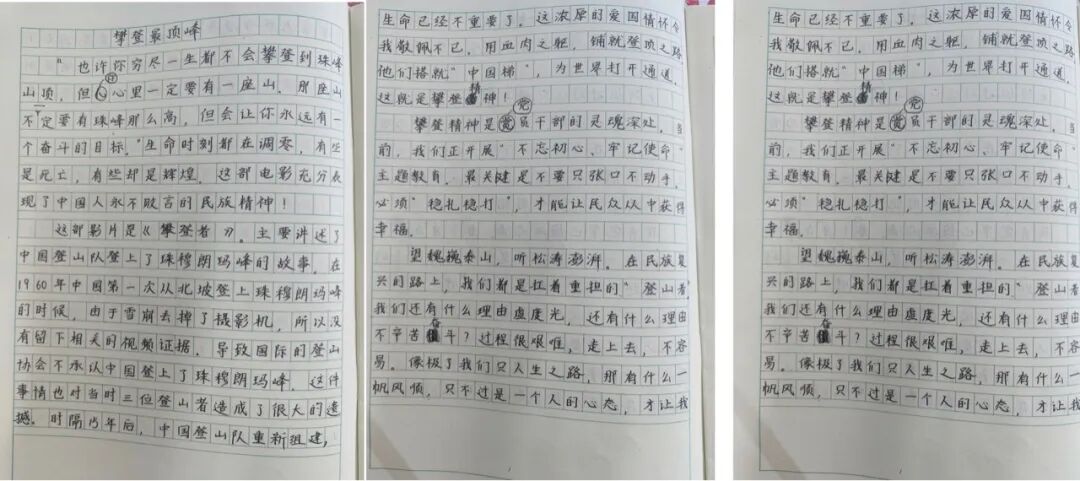 攀登最顶峰
“也许你穷尽一生都不会攀登到珠峰
山顶，但你心里一定要有一座山。那座山
不定要有珠峰那么高，但会让你永远有一
个奋斗的目标。”生命时刻都在凋零，有些
是死亡，有些却是辉煌。这部电影充分表
现了中国人永不败言的民族精神！
这部影片是《攀登者》。主要讲述了
中国登山队登上了珠穆朗玛峰的故事。在
1960年中国第一次从北坡登上珠穆朗玛峰
的时候，由于雪崩去掉了摄影机，所以没
有留下相关的视频证据，导致国际的登山
协会不承认中国登上了珠穆朗玛峰。这件
事情也对当时三位登山者造成了很大的遗
憾。时隔15年后，中国登山队重新组建，
生命已经不重要了，这浓厚的爱国情怀令
我敬佩不已，用血肉之躯，铺就登顶之路
他们搭就“中国梯”，为世界打开通道，
这就是攀登精神！
攀登精神是党员干部的灵魂深处。当
前，我们正开展“不忘初心、牢记使命”
主题教育。最关健是不要只张口不动手，
必须“稳扎稳打”，才能让民众从中获得
幸福。
望巍巍泰山，听松涛澎湃。在民族复
兴的路上，我们都是扛着重担的“登山者
我们还有什么理由虚度光，还有什么理由
不辛苦奋斗？过程很艰难，走上去，不容
易。像极了我们只人生之路，那有什么一
帆风顺，只不过是一个人的心态，才让我
生命已经不重要了，这浓厚的爱国情怀令
我敬佩不已，用血肉之躯，铺就登顶之路
他们搭就“中国梯”，为世界打开通道，
这就是攀登精神！
攀登精神是党员干部的灵魂深处。当
前，我们正开展“不忘初心、牢记使命”
主题教育。最关健是不要只张口不动手，
必须“稳扎稳打”，才能让民众从中获得
幸福。
望巍巍泰山，听松涛澎湃。在民族复
兴的路上，我们都是扛着重担的“登山者
我们还有什么理由虚度光，还有什么理由
不辛苦奋斗？过程很艰难，走上去，不容
易。像极了我们只人生之路，那有什么一
帆风顺，只不过是一个人的心态，才让我